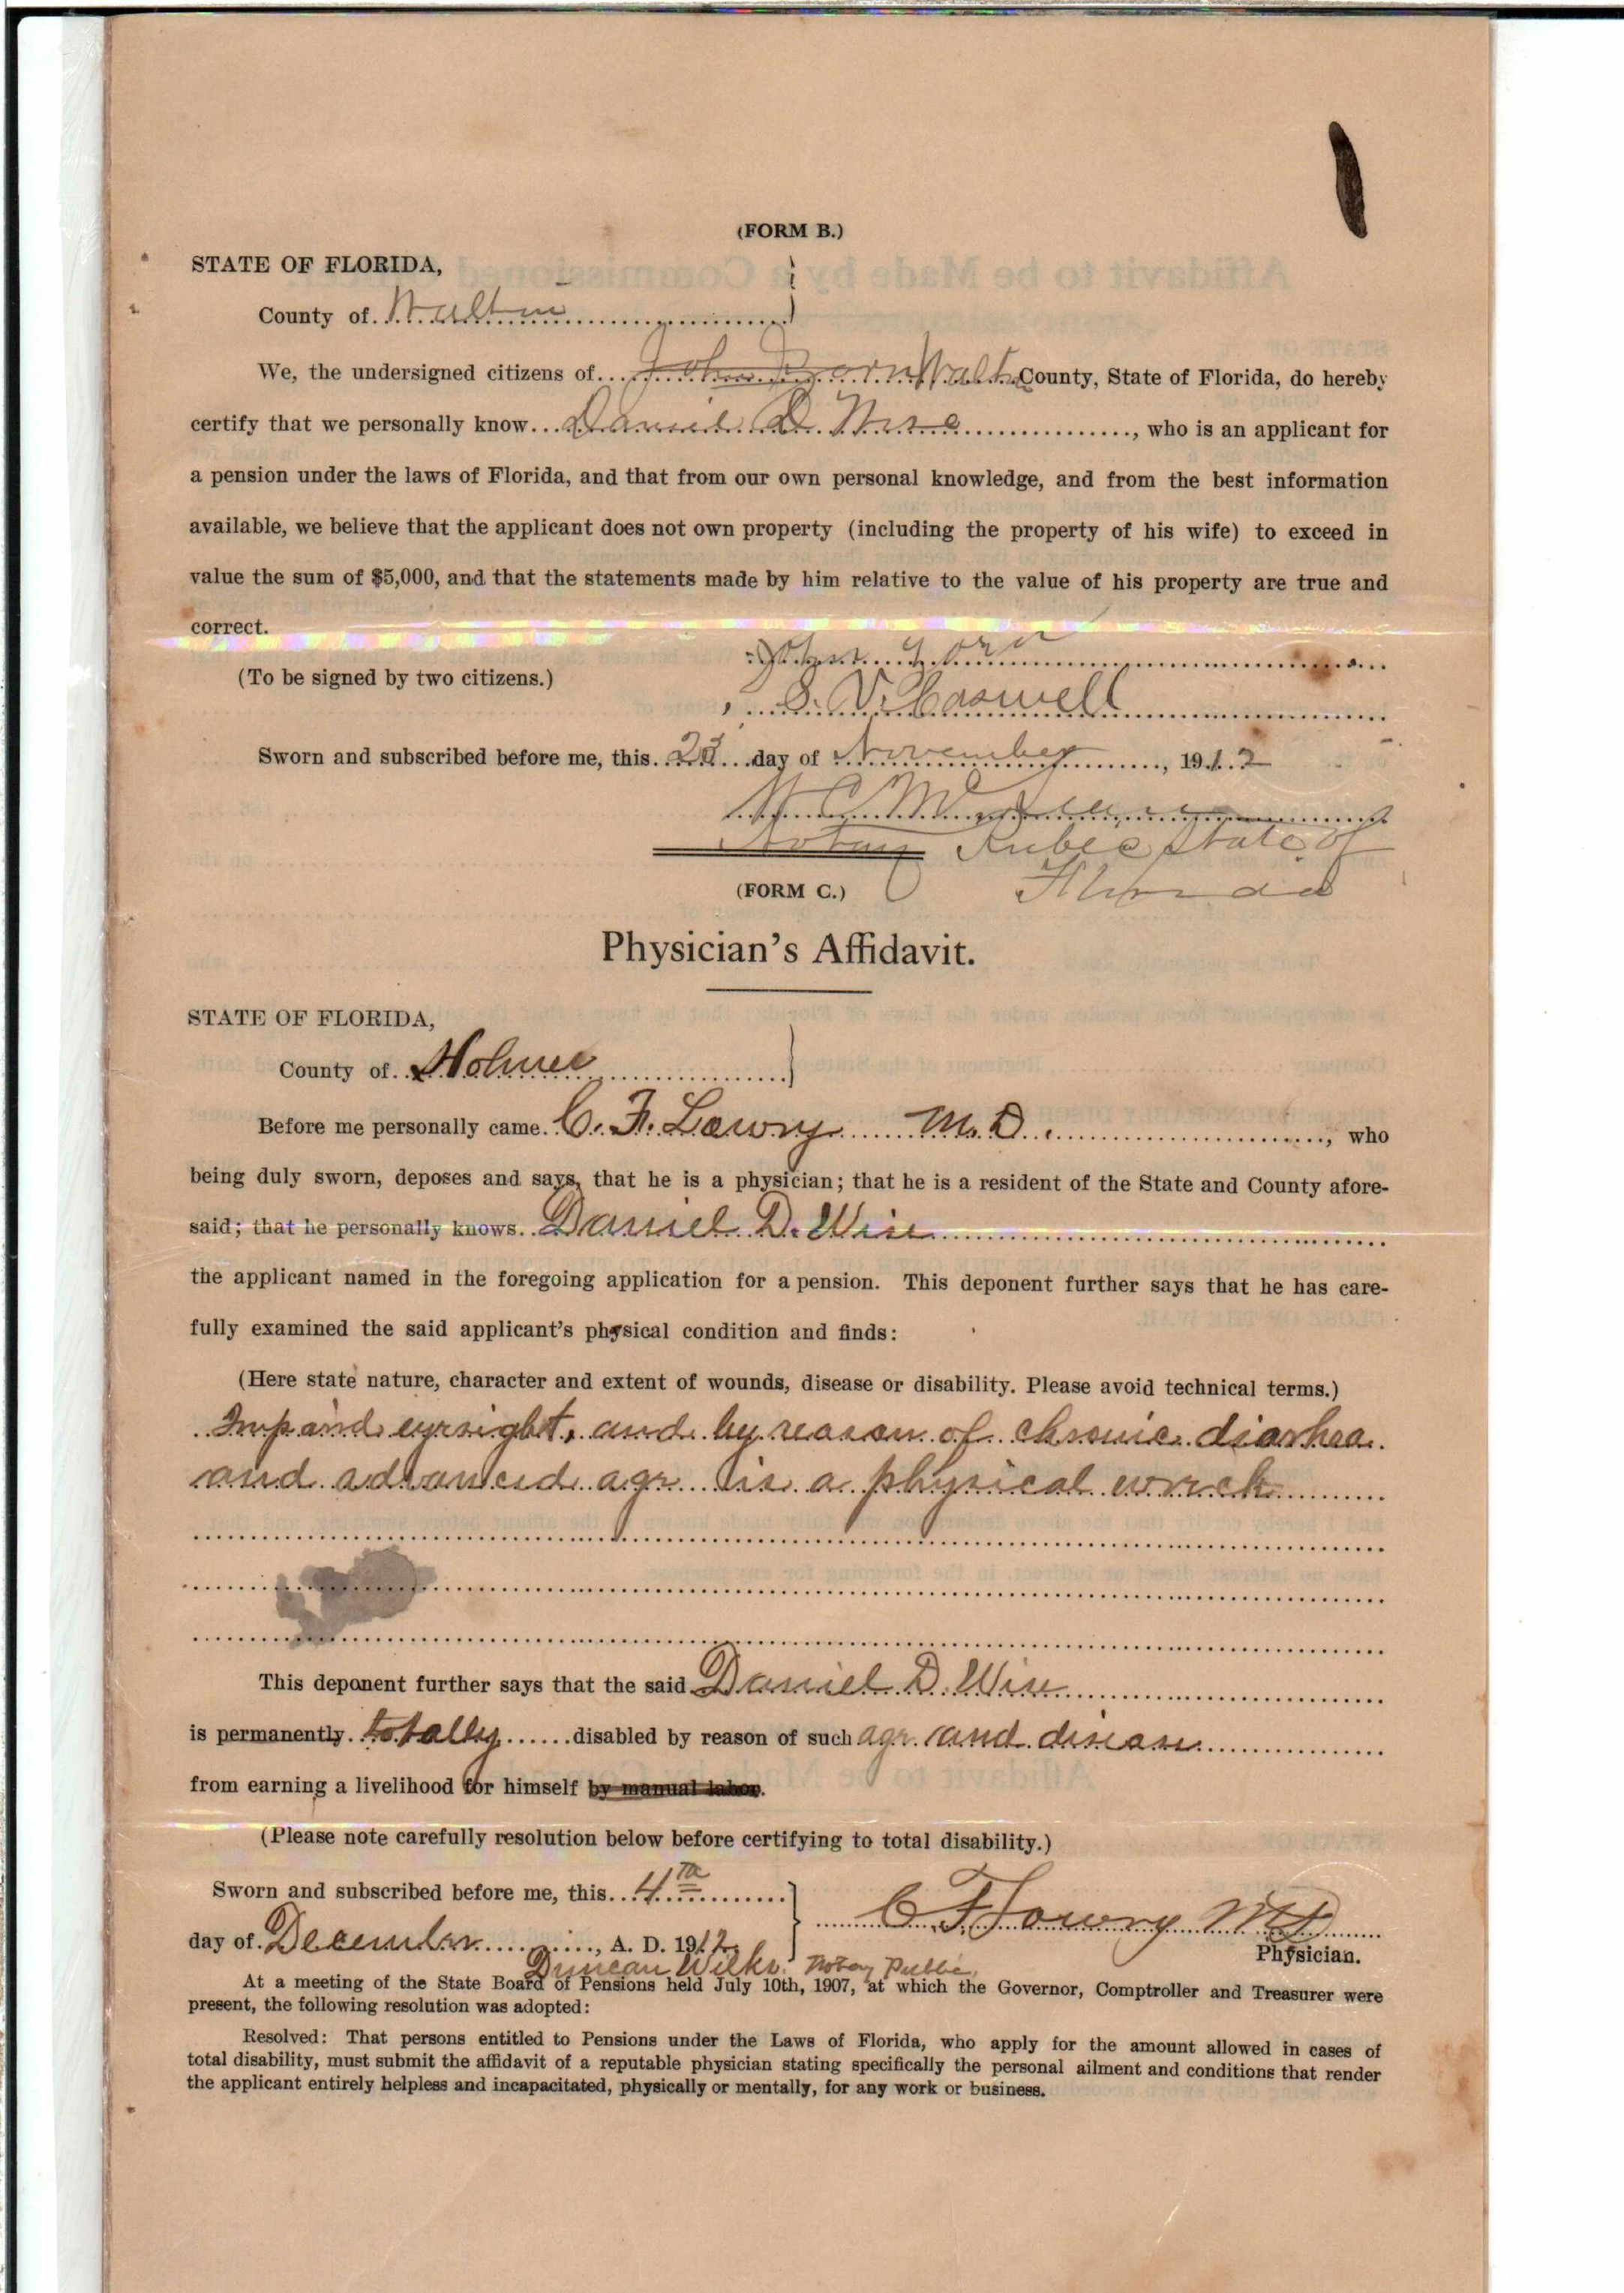 (FORM B.)
STATE OF FLORIDA,
County of Walton
We, the undersigned citizens of John Walton County, State of Florida, do hereby
certify that we personally know Daniel D. Wise, who is an applicant for
a pension under the laws of Florida, and that from our own personal knowledge, and from the best information
available, we believe that the applicant does not own property (including the property of his wife) to exceed in
value the sum of $5,000, and that the statements made by him relative to the value of his property are true and
correct.
John
(To be signed by two citizens.)
S. V. Caswell
Sworn and subscribed before me, this day of November, 1912
W C
Notary Public State of
Florida
(FORM C.)
Physician's Affidavit.
STATE OF FLORIDA,
County of Holmes
Before me personally came C. F. Lowry M.D., who
being duly sworn, deposes and says, that he is a physician; that he is a resident of the State and County afore-
said; that he personally knows Daniel D. Wise
the applicant named in the foregoing application for a pension. This deponent further says that he has care-
fully examined the said applicant's physical condition and finds:
(Here state nature, character and extent of wounds, disease or disability. Please avoid technical terms.)
Impaird eyesight, and by reason of chronic diarhea
and advanced age is a physical wreck
This deponent further says that the said Daniel D. Wise
is permanently totally disabled by reason of such age and disease
from earning a livelihood for himself by manual labor.
(Please note carefully resolution below before certifying to total disability.)
Sworn and subscribed before me, this 4th
C F Lowry MD
day of December, A. D. 1912
Physician.
Duncan Wilks Notary Public
At a meeting of the State Board of Pensions held July 10th, 1907, at which the Governor, Comptroller and Treasurer were
present, the following resolution was adopted:
Resolved: That persons entitled to Pensions under the Laws of Florida, who apply for the amount allowed in cases of
total disability, must submit the affidavit of a reputable physician stating specifically the personal ailment and conditions that render
the applicant entirely helpless and incapacitated, physically or mentally, for any work or business.